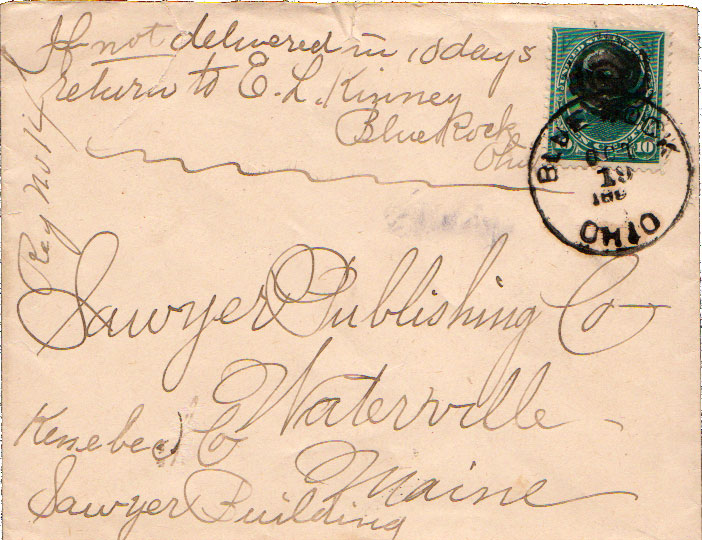 If not delivered in 10 days
return to E. L. Kinney
Blue Rock
Ohio
BLUE ROCK
OCT
13
189
OHIO
10
Sawyer Publishing Co
Waterville
Kennebec Co
Maine
Sawyer Building